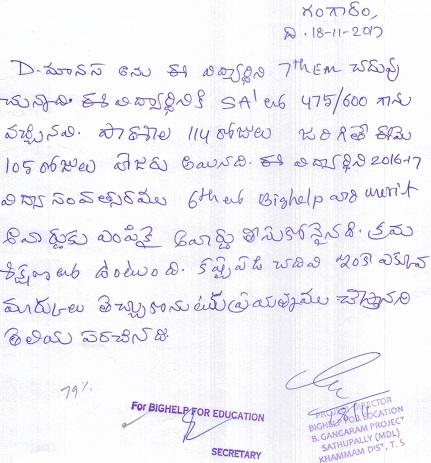 గంగారం,
ది. 18-11-2017
D. మానస అను ఈ విద్యార్థిని 7th EM చదువు
చున్నాది. ఈ విద్యార్థినికి SA1 లో 475/600 గాను
వచ్చినవి. పాఠశాల 114 రోజులు జరిగితే ఈమె
105 రోజులు హాజరు అయినది. ఈ విద్యార్థిని 2016-17
విద్యా సంవత్సరము 6th లో Bighelp వారి merit
అవార్డుకు ఎంపికై అవార్డు తీసుకోన్నైనది. క్రమ
శిక్షణలో ఉంటుంది. కష్టపడి చదివి ఇంకా ఎక్కువ
మార్కులు తెచ్చుకొనుటకు ప్రయత్నము చేస్తానని
తెలియ పరచినది.
79%
For BIGHELP FOR EDUCATION
SECRETARY
PROJECT DIRECTOR
BIGHELP FOR EDUCATION
B. GANGARAM PROJECT
SATHUPALLY (MDL)
KHAMMAM DIST, T. S